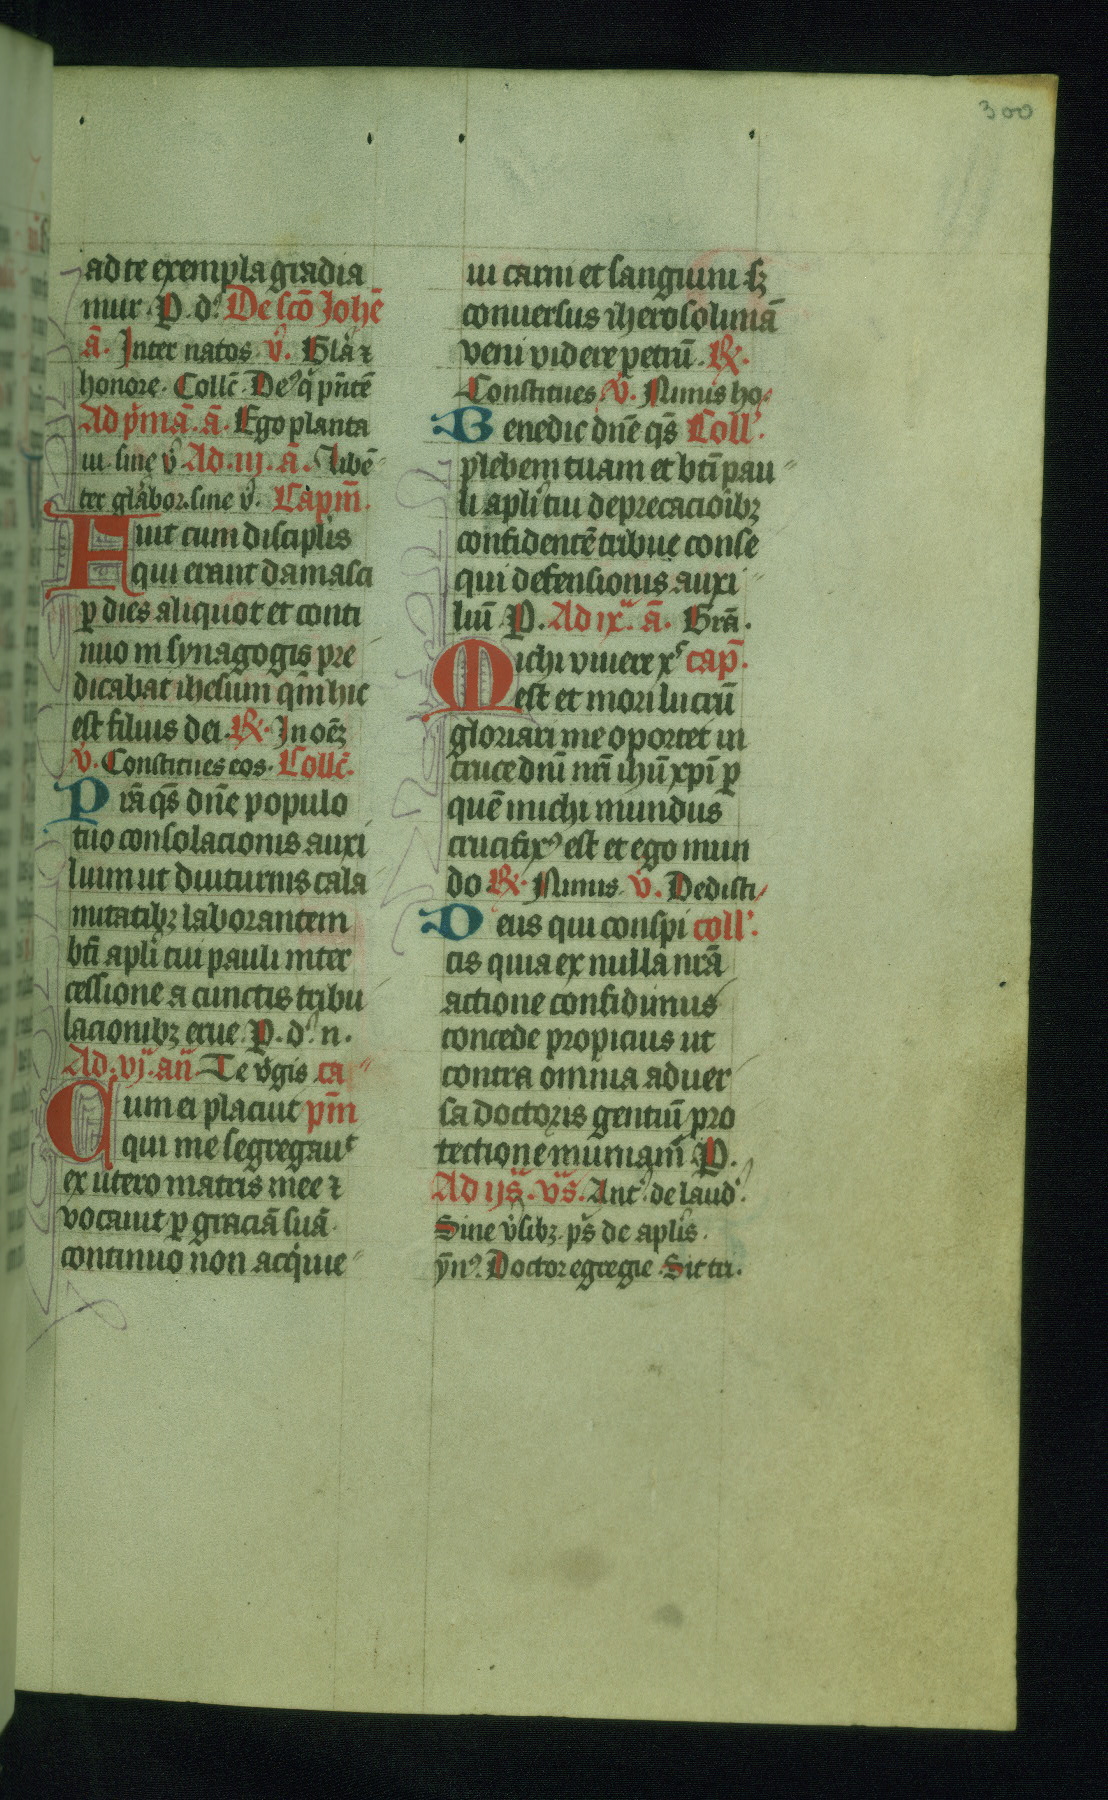 300
ad te exempla gradia
mur. P. d.ꝰ De scō Johē
ā. Inter natos. v̄. Gl̄a ⁊
honore. Coll̄c. Deꝰ q̄ p̄ntē
Ad p̄mā. ā. Ego planta
ui. sine v̄ Ad .iij. ā. Libē
ter gl̄abor. sine v̄. Capm̄.
Fuit cum disciplis
qui erant damasci
ꝑ dies aliquot et conti
nuo in synagogis pre
dicabat ihesum qm̄ hic
est filius dei. ℟. In oēꝫ
v̄. Constitues eos. Coll̄c.
Prā qs̄ dn̄e populo
tuo consolacionis auxi
lium ut diuturnis cala
mitatibꝫ laborantem
bt̄i apl̄i tui pauli inter
cessione a cunctis tribu
lacionibꝫ erue. P. d.ꝰ n.
Ad .vj. an̄. Te v̄gis ca
Cum ei placuit pm̄
qui me segregauᵗ
ex utero matris mee ⁊
vocauit ꝑ graciā suā.
continuo non acq̄uie
ui carni et sanguini sꝫ
conuersus iherosolimā
veni videre petrū. ℟.
Constitues. v̄. Nimis ho.
Benedic dn̄e qs̄ Coll'.
plebem tuam et bt̄i pau
li apl̄i tui deprecacioībꝫ
confidentē tribue conse
qui defensionis auxi
liū. P. Ad ix. ā. Grā.
Michi viuere xᶜ cap̄.
est et mori lucrū
gloriari me oportet in
cruce dn̄i nr̄i ihū xpī ꝑ
quē michi mundus
crucifixꝰ est et ego mun
do ℟. Nimis v̄. Dedisti
Deus qui conspi coll'.
cis quia ex nulla nrā
actione confidimus
concede propicius ut
contra omnia aduer
sa doctoris gentiū pro
tectione muniam̄. P.
Ad ijs̄. vs̄. Ant'. de laud'.
Sine v̄sibꝫ. ps̄ de aplīs.
ȳnꝰ. Doctor egregie. Sit tri.